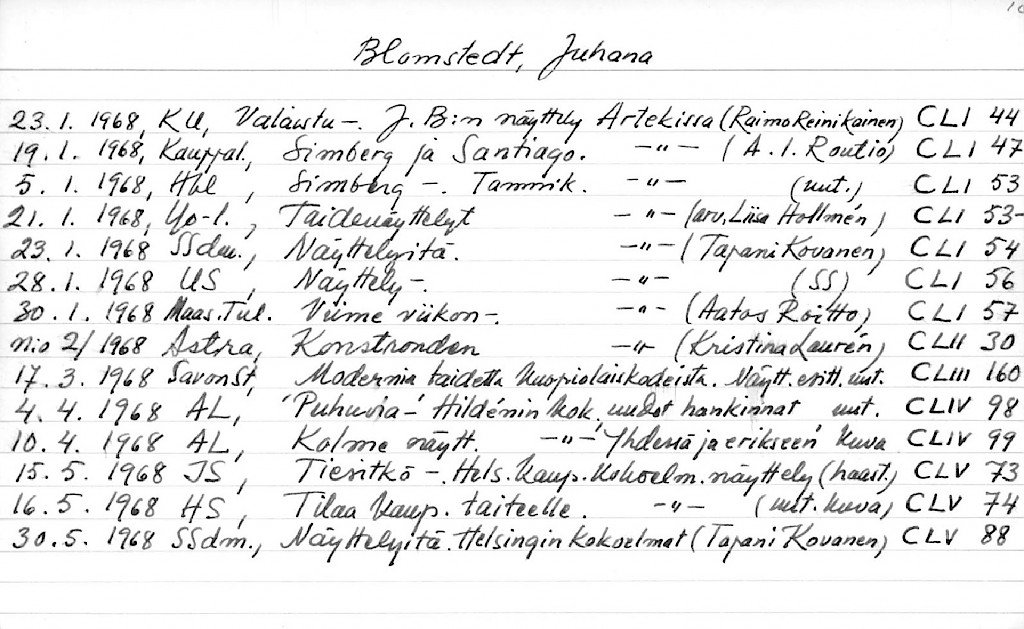 Blomstedt, Juhana
23.1.1968, KU, Valaistu -. J. B:n näyttely Artekissa (Raimo Reinikainen) CLI 44
19.1.1968, Kauppal., Simberg ja Santiago. -"- (A.I. Routio) CLI 47
5.1.1968, Hbl, Simberg -. Tammik. -"- (uut.) CLI 53
21.1.1968, Yo-l., Taidenäyttelyt -"- (arv. Liisa Hollmén) CLI 53-
23.1.1968 SSdm., Näyttelyitä. -"- (Tapani Kovanen) CLI 54
28.1.1968 US, Näyttely -. -"- (SS) CLI 56
30.1.1968 Maas.Tul. Viime viikon -. -"- (Aatos Roitto) CLI 57
n:o 2/1968 Astra, Konstronden -"- (Kristina Laurén) CLII 30
17.3.1968 SavonSt, Modernia taidetta kuopiolaiskodeista. Näytt. esitt. uut. CLIII 160
4.4.1968 AL, "Puhuvia -" Hildénin kok. uudet hankinnat uut. CLIV 98
10.4.1968 AL, Kolme näytt. -"- "Yhdessä ja erikseen" kuva CLIV 99
15.5.1968 JS, Tiesitkö -. Hels. kaup. kokoelm. näyttely (haast.) CLV 73
16.5.1968 HS, Tilaa kaup. taiteelle. -"- (uut. kuva) CLV 74
30.5.1968 SSdm., Näyttelyitä. Helsingin kokoelmat (Tapani Kovanen) CLV 88